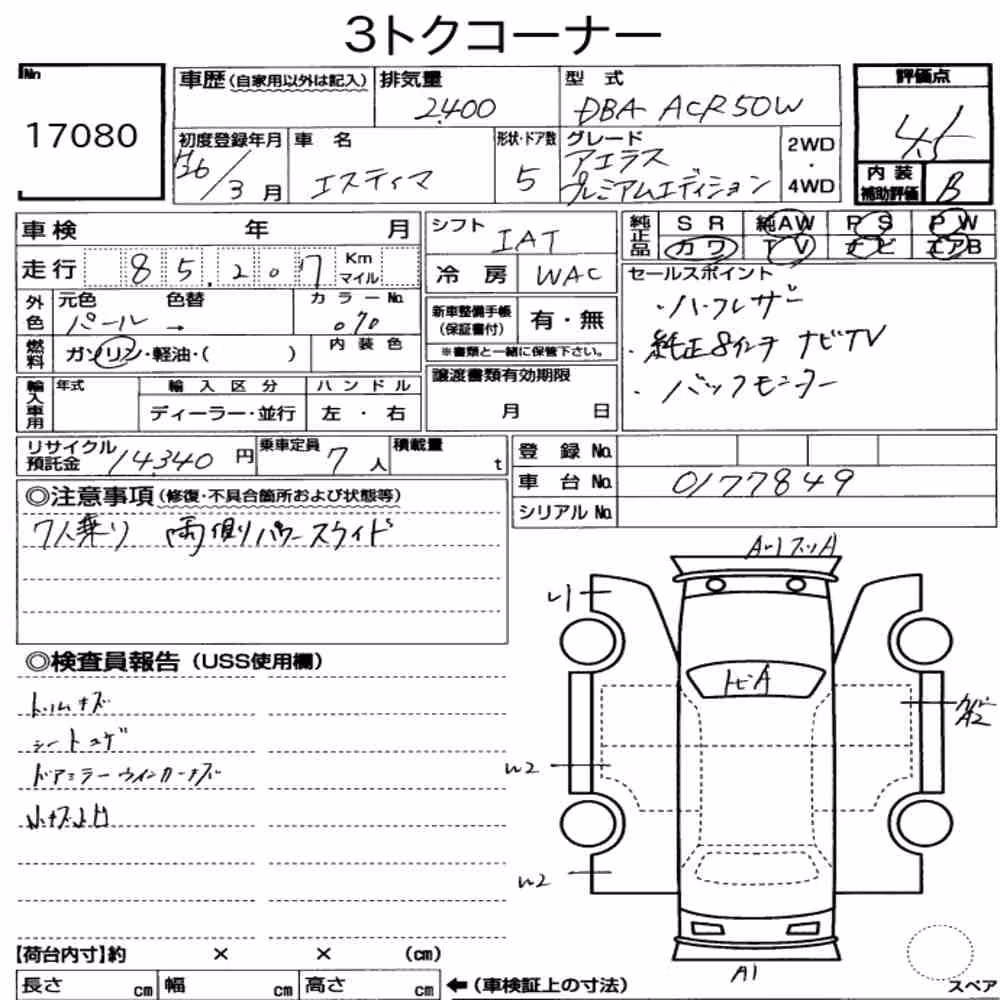 3トクコーナー
No
17080
車歴(自家用以外は記入)
排気量
2400
型 式
DBA ACR50W
評価点
4.5
内 装
補助評価
B
初度登録年月
26/3月
車 名
エスティマ
形状・ドア数
5
グレード
アエラス
プレミアムエディション
2WD
・
4WD
車検 年 月
走行 85,207 Km マイル
シフト IAT
冷 房 WAC
純正品
SR 純AW PS PW
カワ TV ナビ エアB
外色
元色 パール
色替 →
カラーNo. 070
燃料
ガソリン・軽油・( )
内 装 色
新車整備手帳
(保証書付)
有・無
※書類と一緒に保管下さい。
セールスポイント
・ハーフレザー
・純正8インチ ナビTV
・バックモニター
輸入車用
年式
輸 入 区 分
ディーラー・並行
ハ ン ド ル
左 ・ 右
譲渡書類有効期限
月 日
リサイクル
預託金 14,340 円
乗車定員 7 人
積載量 t
登 録 No.
車 台 No. 0177849
シリアル No.
◎注意事項(修復・不具合箇所および状態等)
7人乗り 両側パワースライド
◎検査員報告(USS使用欄)
トリムキズ
シートコゲ
ドアミラーウインカーキズ
小キズ凹
A1
トビA
W2
A2
W2
A1
【荷台内寸】約 × × (cm)
長さ cm 幅 cm 高さ cm ←(車検証上の寸法)
スペア